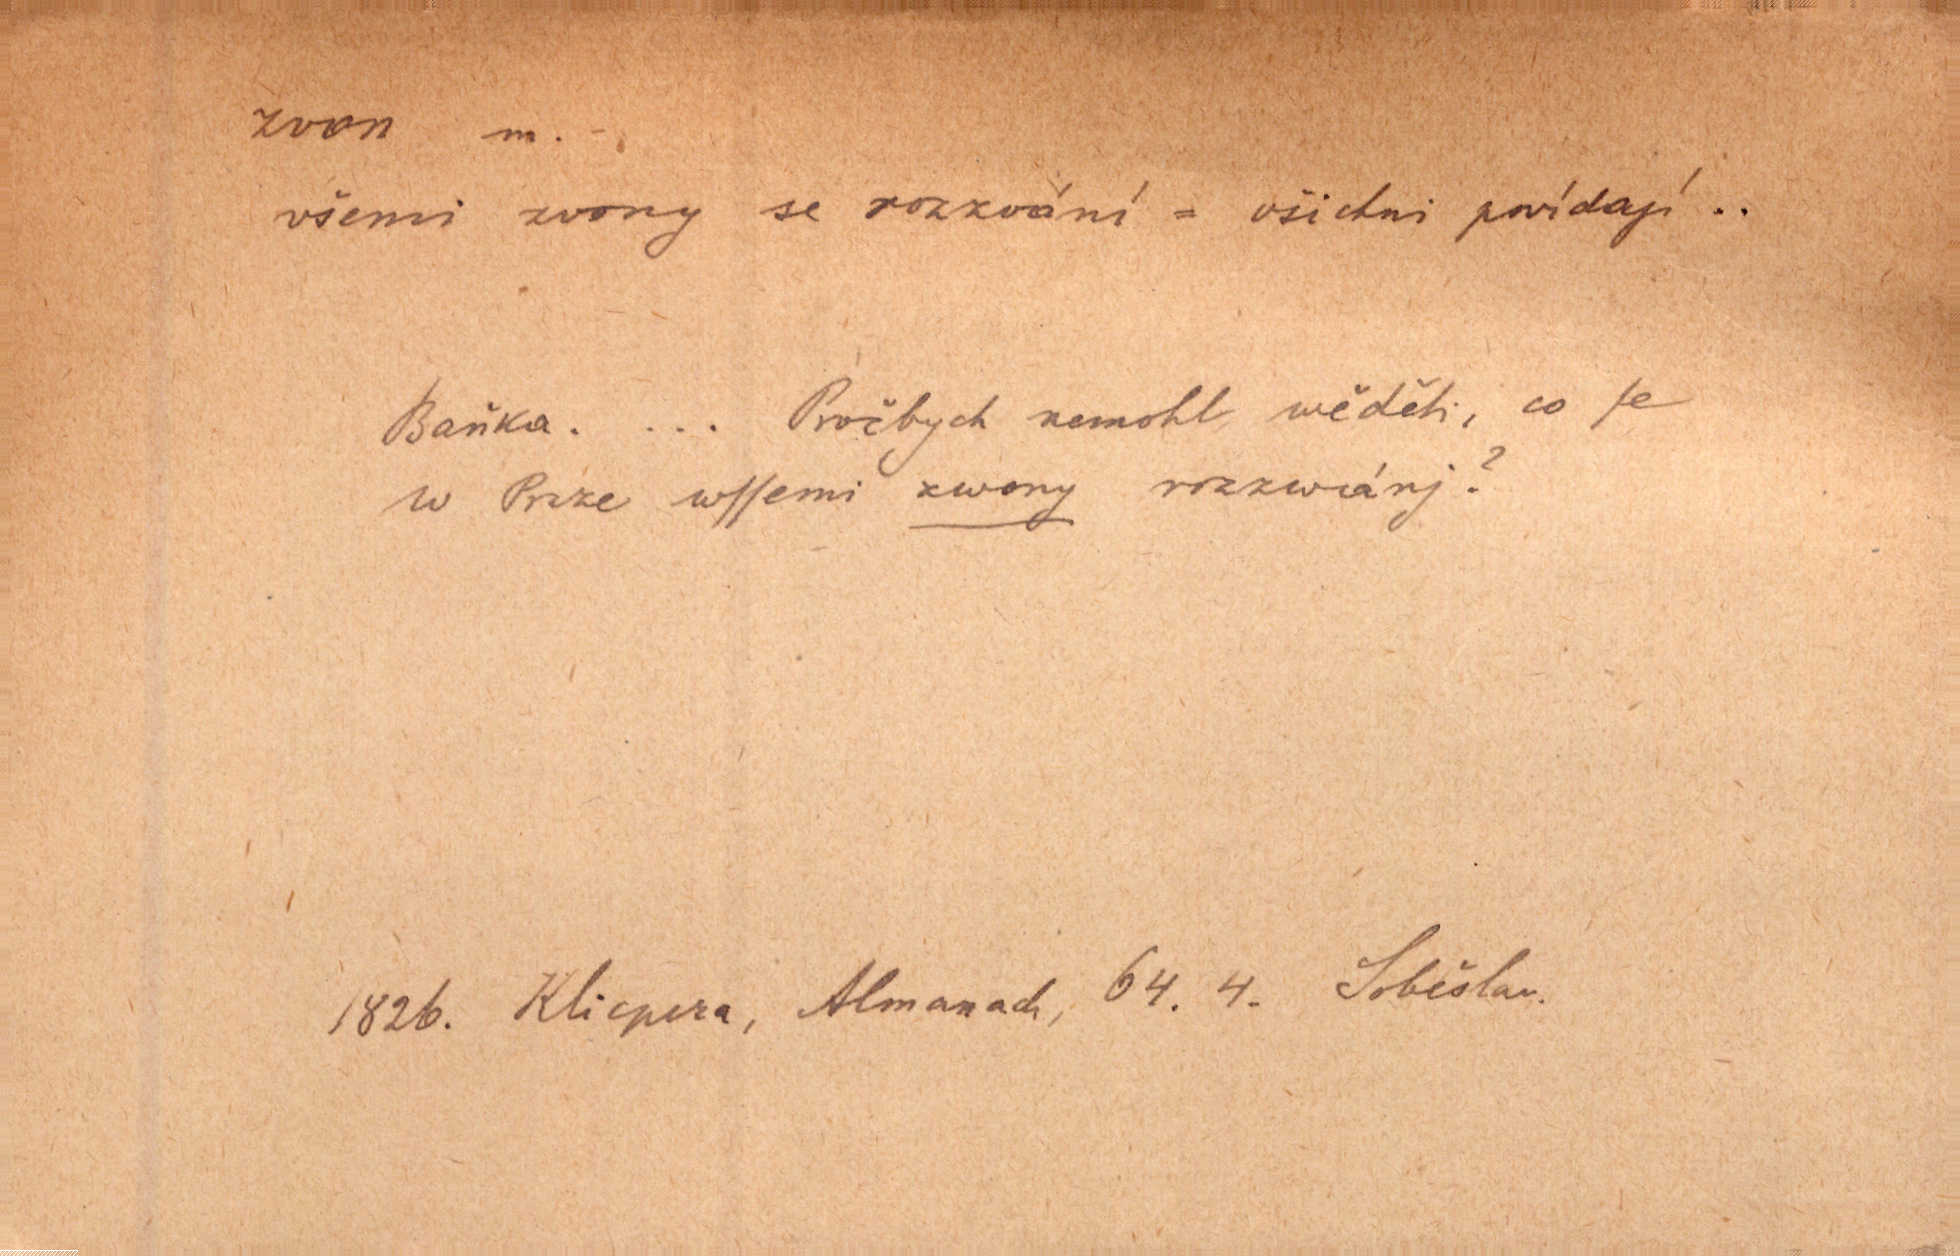 zvon m.
všemi zvony se rozzvání = všichni povídají ..
Baňka. ... Pročbych nemohl wěděti, co ſe
w Praze wſſemi zwony rozzwánj?
1826. Klicpera, Almanach, 64. 4. Soběslav.